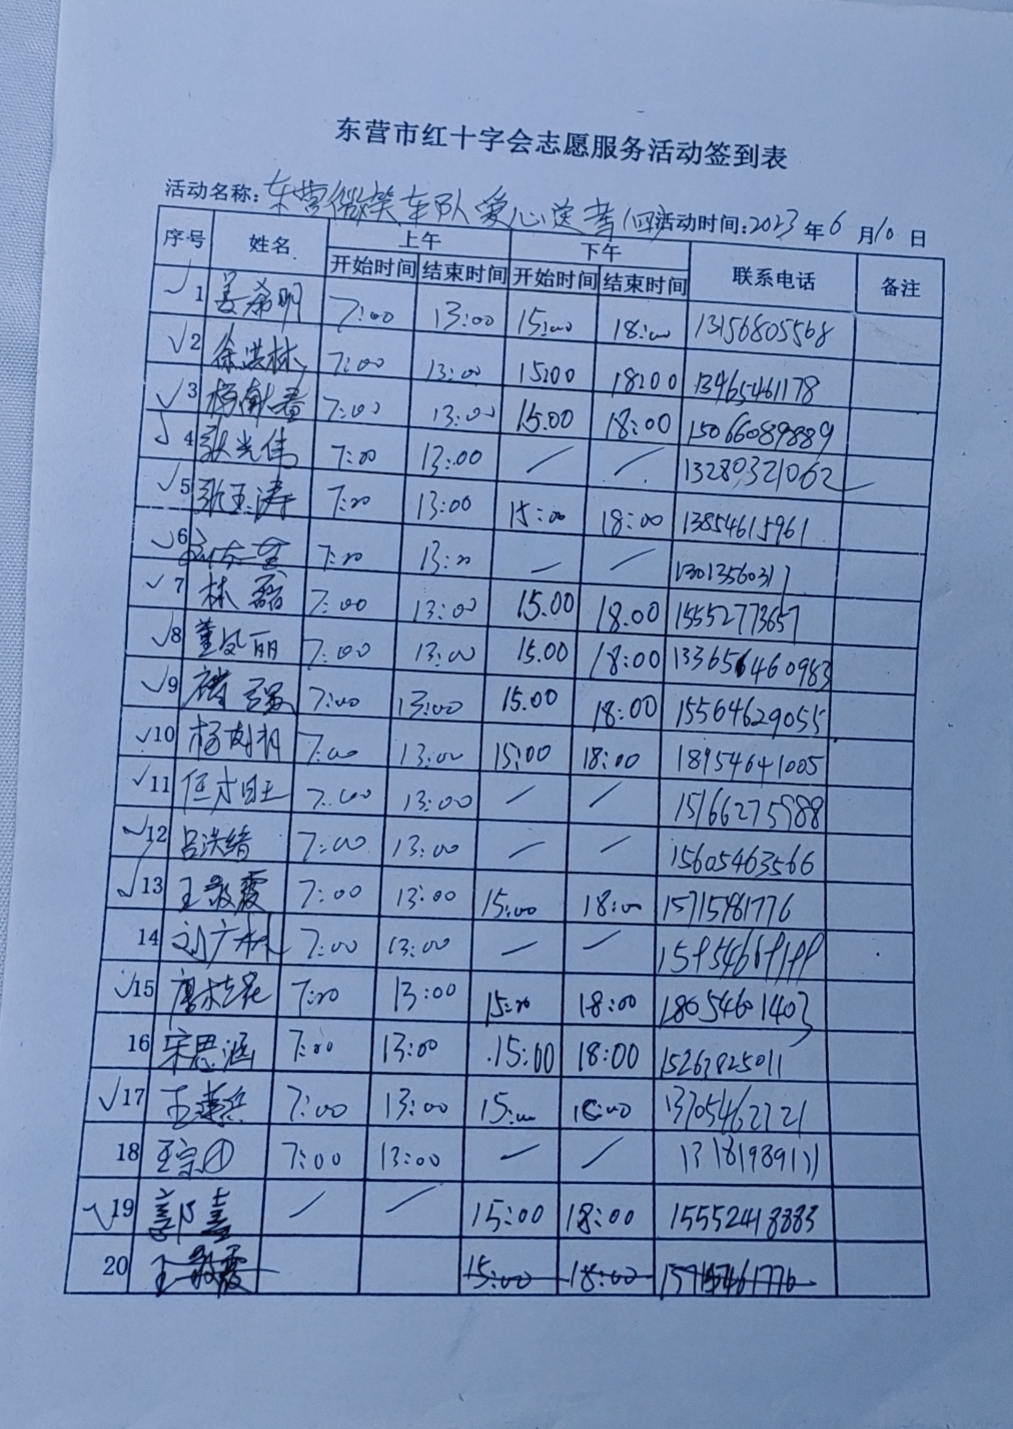 东营市红十字会志愿服务活动签到表
活动名称：东营微笑车队爱心送考（四）活动时间：2023年6月10日
序号 姓名 上午 下午 联系电话 备注
开始时间 结束时间 开始时间 结束时间
√1 姜希明 7:00 13:00 15:00 18:00 13156805568
√2 徐洪林 7:00 13:00 15:00 18:00 13465461178
√3 杨献春 7:00 13:00 15.00 18:00 15066089889
√4 张光伟 7:00 13:00 / / 13280321062
√5 张玉涛 7:00 13:00 15:00 18:00 13854615961
√6 7:00 13:00 — / 13013560317
√7 林磊 7:00 13:00 15.00 18.00 15552773657
√8 董凤丽 7:00 13:00 15.00 18:00
√9 褚强 7:00 13:00 15.00 18:00 15564629055
√10 7:00 13:00 15:00 18:00 18954641005
√11 7:00 13:00 / / 15166275988
√12 吕洪绪 7:00 13:00 / / 15605463566
√13 王敬霞 7:00 13:00 15:00 18:00 15715981776
14 刘广 7:00 13:00 — /
√15 7:00 13:00 15:00 18:00 18054601403
16 宋思涵 7:00 13:00 15:00 18:00
√17 7:00 13:00 15:00 18:00 13705462721
18 王宗 7:00 13:00 — /
√19 郭喜 / / 15:00 18:00 15552418883
20 王敬霞 15:00 18:00